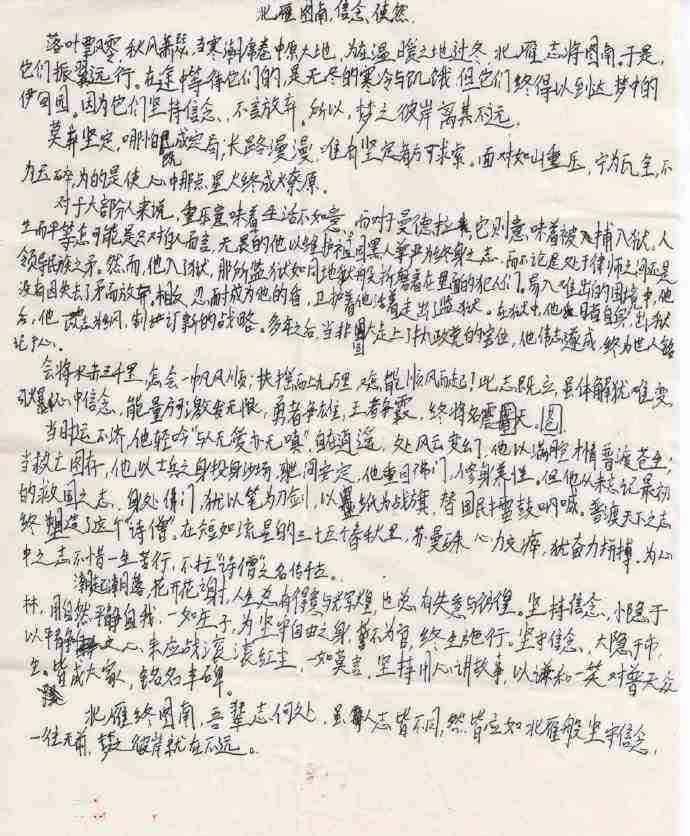 北雁图南,信念使然
落叶飘零,秋风萧瑟,当寒潮席卷中原大地,为在温暖之地过冬,北雁志将图南。于是,
他们振翼远行。在途中等待他们的,是无尽的寒冷与饥饿,但他们终得以到达梦中的
伊甸园。因为他们坚持信念、不言放弃。所以,梦之彼岸离其不远。
莫弃坚定,哪怕已成定局,长路漫漫,唯有坚定者方可求索。面对如山重压,宁为瓦全,不
为玉碎,为的是使心中那点星火终成燎原。
对于大部分人来说,重压意味着生活不如意。而对于曼德拉,它则意味着被捕入狱。人
生而平等志可能是只对白人而言,无畏的他以维护祖国黑人尊严为终身之志,而不论是处于律师之间还是
领导民族之矛。然而,他入了狱,那所监狱如同地狱般折磨着在里面的犯人们,易入难出的困境中,他
没有因失去了矛而放弃,相反,忍耐成为他的盾,卫护着他活着走出了监狱。在狱中,他自省,出狱
后,他改志,制定订新的战略。多年之后,当非国大走上了执政党的宫位,他伟志遂成,终为世人铭
记于心。
会将水击三千里,怎会一帆风顺;扶摇而上九万里,难能顺风而起!此志既立,具体解犹难变。
心中信念,能量方激发无限,勇者争雄,王者争霸,终将名震天。
当时运不济,他轻吟“以无爱亦无嗔”,自在逍遥,处风云变幻,他以满腔才情普渡苍生;
当救亡图存,他以士兵之身投身沙场,继間安定,他重回佛门,修身养性。但他从未忘记最初
的救国之志,身处佛门,犹以笔为刀剑,以纸为战旗,替国民擂鼓呐喊。普渡天下之志
终塑造了这个“诗僧”。在短如流星的三十五个春秋里,苏曼殊心力交瘁,犹奋力拼搏,为心
中之志不惜一生苦行,不枉“诗僧”之名传千古。
潮起潮落,花开花谢,人生总有得意与辉煌,也总有失意与彷徨。坚持信念,小隐于
林,用自然平静自我,一如庄子,为坚守自由之身,誓不为官,终生践行。坚守信念,大隐于市,
以平静之心,来应战滚滚红尘,一如莫言,坚持用心讲故事,以谦和一笑对普天众
生。皆成大家,铭名丰碑。
北雁终图南,吾辈志何处,虽人志皆不同,然皆应如北雁般坚守信念,
一往无前,梦之彼岸就在不远。